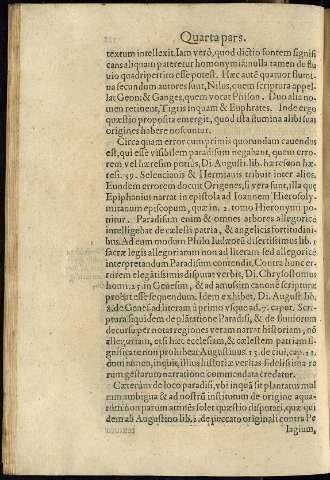 Quarta pars.
textum intellexit. Iam verò, quod dictio fontem signifi
cans aliquam pateretur homonymiã: nulla tamen de flu
uio quadripertito esse potest. Hæc autẽ quatuor flumi
na secundum autores sunt, Nilus, quem scriptura appel
lat Geon: & Ganges, quem vocat Phison. Duo alia no
men retinent, Tigris inquam & Euphrates. Inde ergo
quæstio proposita emergit, quod ista flumina alibi suas
origines habere noscuntur.
Circa quam error cum primis quorundam cauendus
est, qui esse visibilem paradisum negabant, quem erro
rem vel hæresim potiùs, Di. August. lib. hæreseon hæ
resi. 59. Seleucianis & Hermianis tribuit inter alios.
Eundem errorem docuit Origenes, si vera sunt, illa quę
Epiphanius narrat in epistola ad Ioannem Hierosoly
mitanum episcopum, quæ in .2. tomo Hieronymi po
nitur. Paradisum enim & omnes arbores allegoricè
intelligebat de cælesti patria, & angelicis fortitudini
bus. Ad eum modum Philo Iudæorũ disertissimus lib. 1
sacræ legis allegoriarum non ad literam sed allegoricè
interpretandum Paradisum contendit. Contra hunc er-
rorem elegãtissimis disputat verbis, Di. Chrysostomus
homi. 13. in Genesim, & ad amussim canonẽ scripturæ
procũt esse sequendum. Idem exhibet, Di. August. lib.
8. de Genesi ad literam à primo vsque ad .7. caput. Scri
ptura siquidem de plãtatione Paradisi, & de fluuiorũ
decursu per notas regiones veram narrat historiam, nõ
allegoriam, etsi hæc ecclesiam, & cælestem patriam si
gnificare non prohibeat Augustinus 13. de ciui, cap. 21.
dom nãnco, inquit, illius historiæ veritas fidelissima re
rum gestarum narratione commendata credatur.
Cæterùm de loco paradisi, vbi inquã sit plantatus mul
tùm ambigua & ad nostrum institutum de origine aqua-
rũ non parum attinẽs solet quæstio disputari, quæ qui
dem ab Augustino lib. 2. de peccato originali contra Pe
lagium,